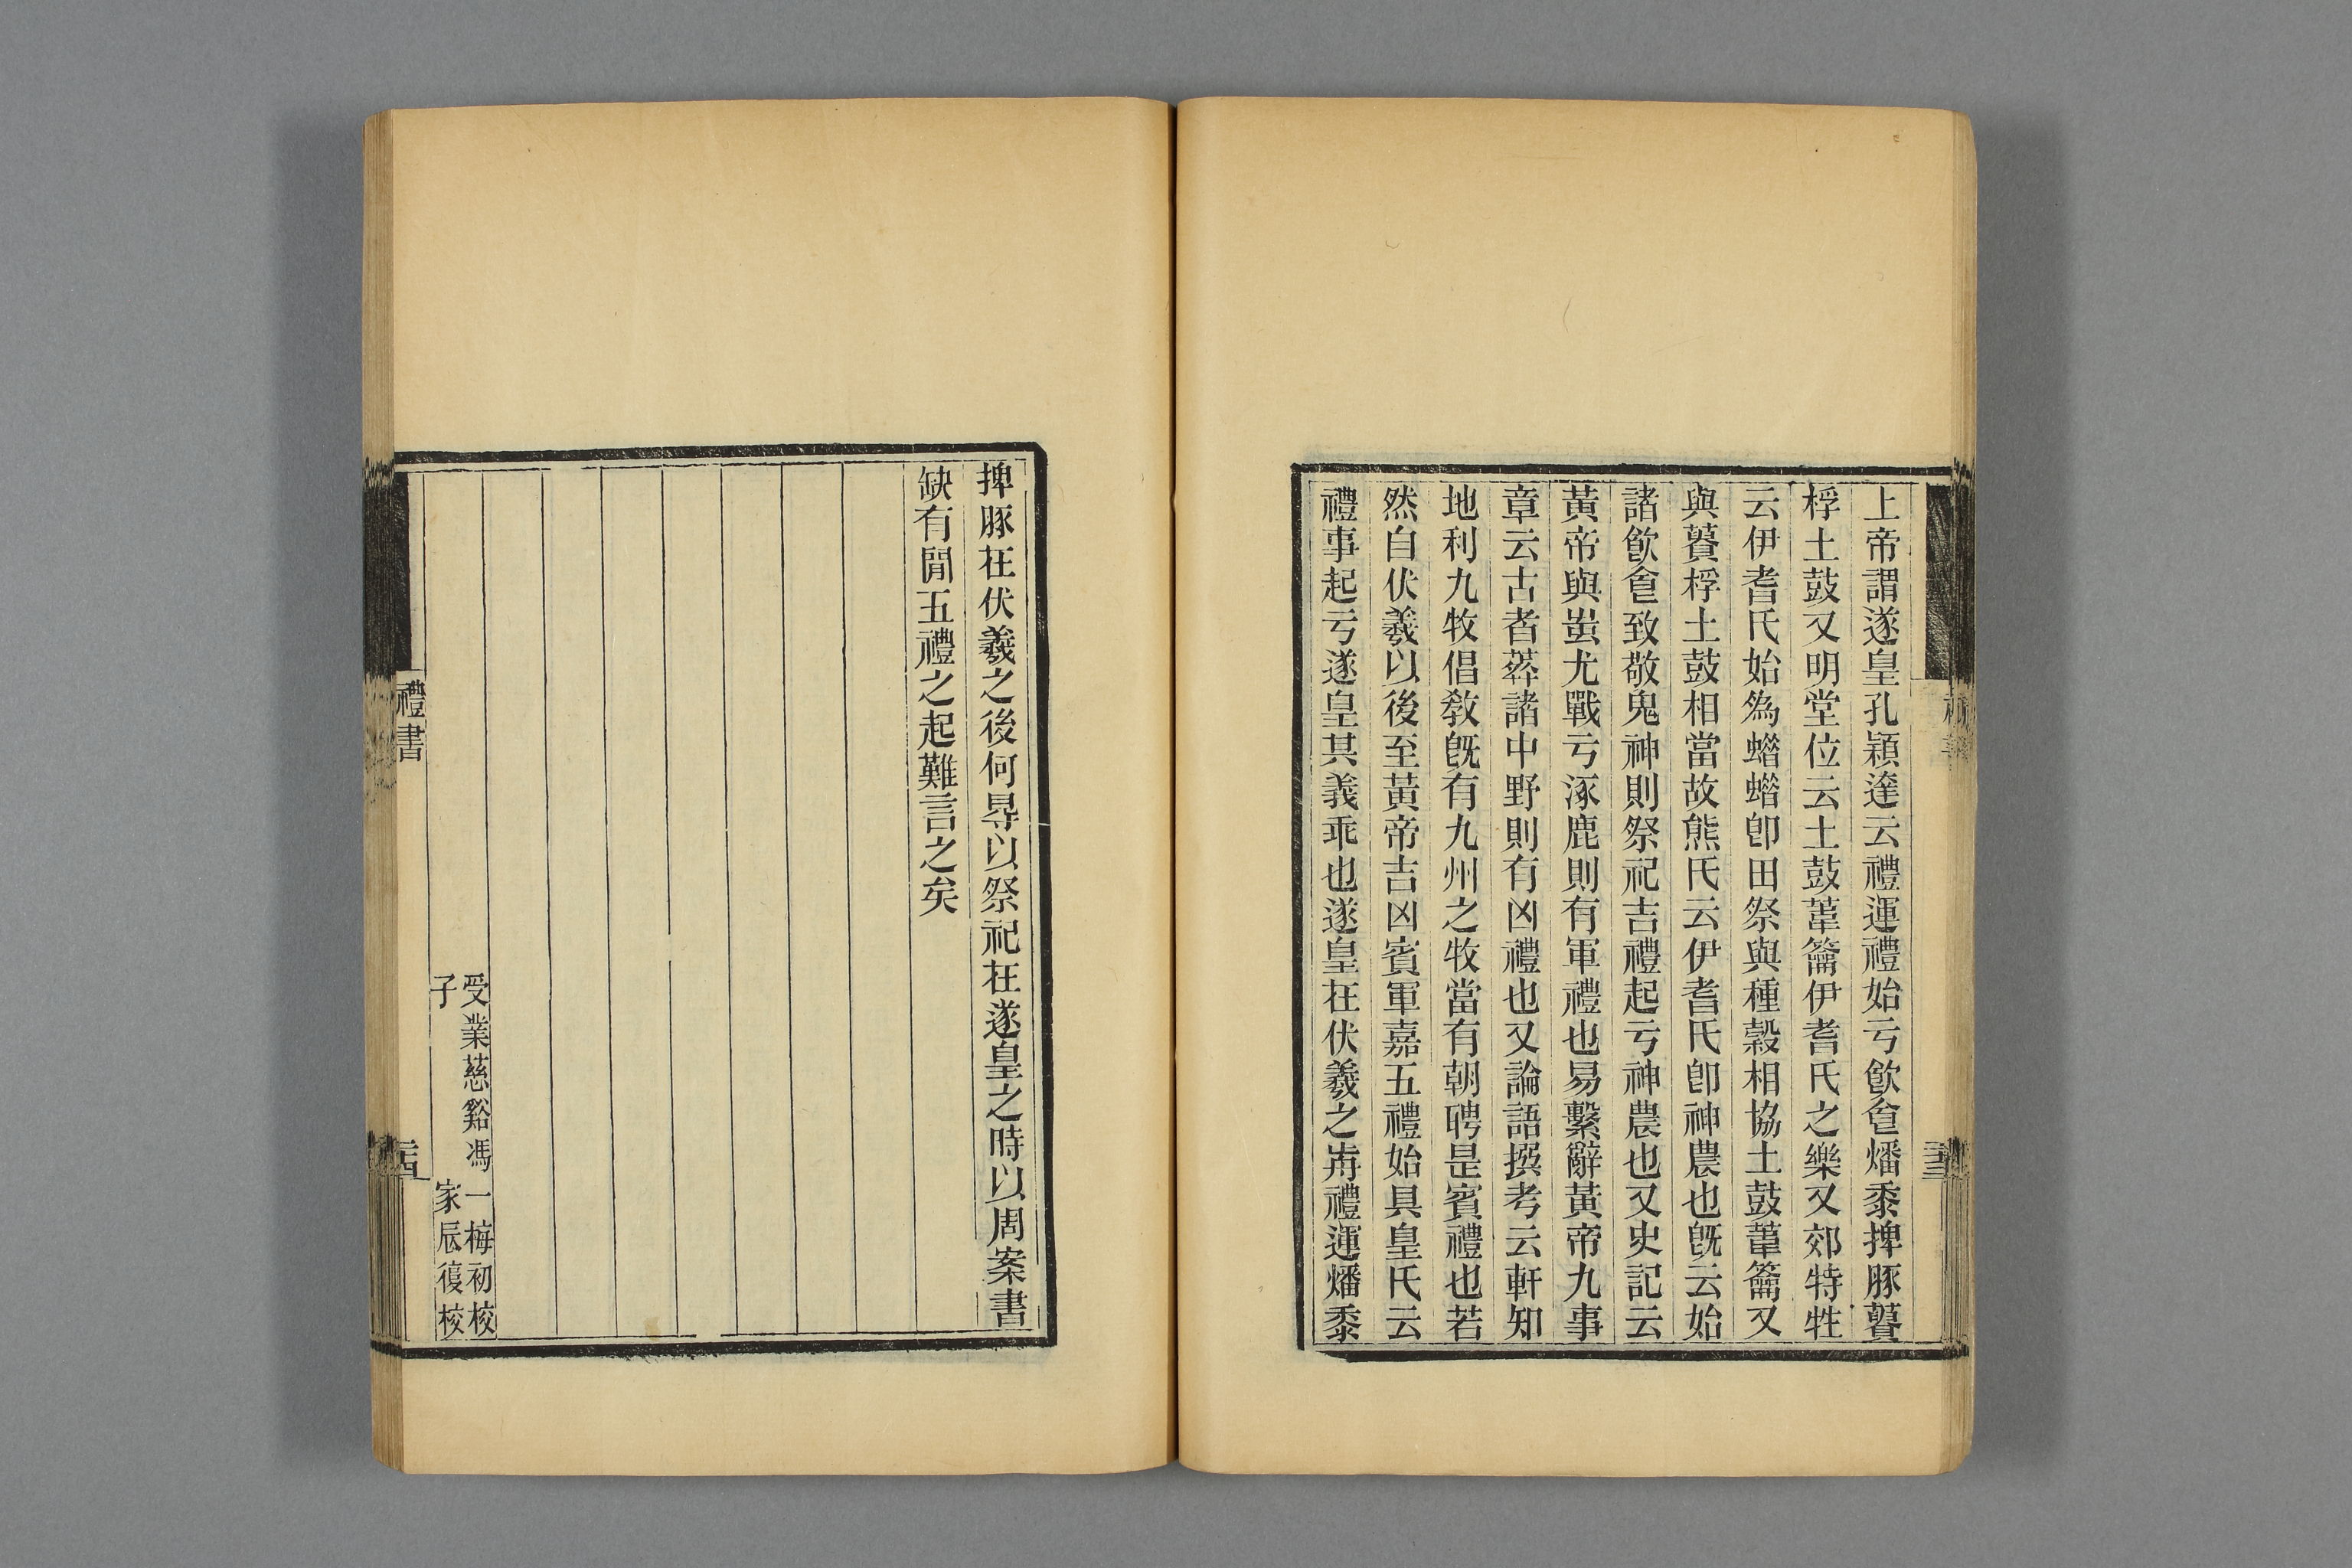 上帝謂遂皇孔穎達云禮運禮始亏飮𠊊燔黍捭豚蕢
桴土鼓又明堂位云土鼓葦籥伊耆氏之樂又郊特牲
云伊耆氏始爲蠟蠟卽田祭與種穀相協土鼓葦籥又
與蕢桴土鼓相當故熊氏云伊耆氏卽神農也旣云始
諸飮食致敬鬼神則祭祀吉禮起亏神農也又史記云
黃帝與蚩尤戰亏涿鹿則有軍禮也易繫辭黃帝九事
章云古者葬諸中野則有凶禮也又論語撰考云軒知
地利九牧倡敎旣有九州之牧當有朝聘是賓禮也若
然自伏羲以後至黃帝吉凶賓軍嘉五禮始具皇氏云
禮事起亏遂皇其義乖也遂皇在伏羲之歬禮運燔黍
捭豚在伏羲之後何㝵以祭祀在遂皇之時以周案書
缺有閒五禮之起難言之矣
受業慈谿馮一梅初校
子家辰復校
禮書